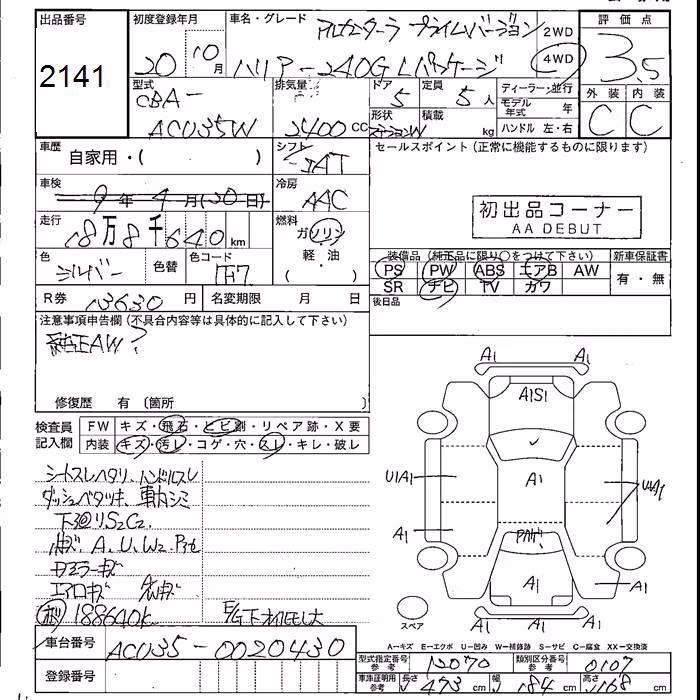 出品番号 初度登録年月 車名・グレード アルカンターラ プライムバージョン 2WD 評価点
2141 20 10月 ハリアー 240G Lパッケージ 4WD 3.5
型式 排気量 ドア 定員 ディーラー・並行 外装 内装
CBA- 5 5人 モデル年式 年 C C
ACU35W 2400CC 形状 ステーションW 積載 kg ハンドル 左・右
車歴 自家用・( ) シフト セールスポイント (正常に機能するものに限ります)
車検 9年4月(30日) 冷房 AAC
初出品コーナー
AA DEBUT
走行 18万8千640km 燃料 ガソリン
軽・油
装備品 (純正品に限り○をつけて下さい) 新車保証書
色 シルバー 色替 色コード 1F7 PS PW ABS エアB AW 有・無
SR ナビ TV カワ
R券 13630円 名変期限 月 日 後日品
注意事項申告欄 (不具合内容等は具体的に記入して下さい)
純正AW?
修復歴 有 (箇所
検査員記入欄 FW キズ・飛石・ヒビ割・リペア跡・X要
内装 キズ・汚レ・コゲ・穴・スレ・キレ・破レ
シートスレヘタリ、ハンドルスレ
ダッシュベタツキ 車内シミ
下廻りS2C2.
A.U.W2.
ドアミラーキズ
エアロキズ
188640k
A1 A1
A1S1
U1A1 A1 U1A1
A1
A1 A1
A1 A1
スペア
A-キズ E-エクボ U-凹み W-補修跡 S-サビ C-腐食 XX-交換済
車台番号 ACU35-0020430
型式指定番号 参考 12070 類別区分番号 参考 0107
登録番号 車庫証明用参考 長さ 473cm 幅 184cm 高さ 168cm